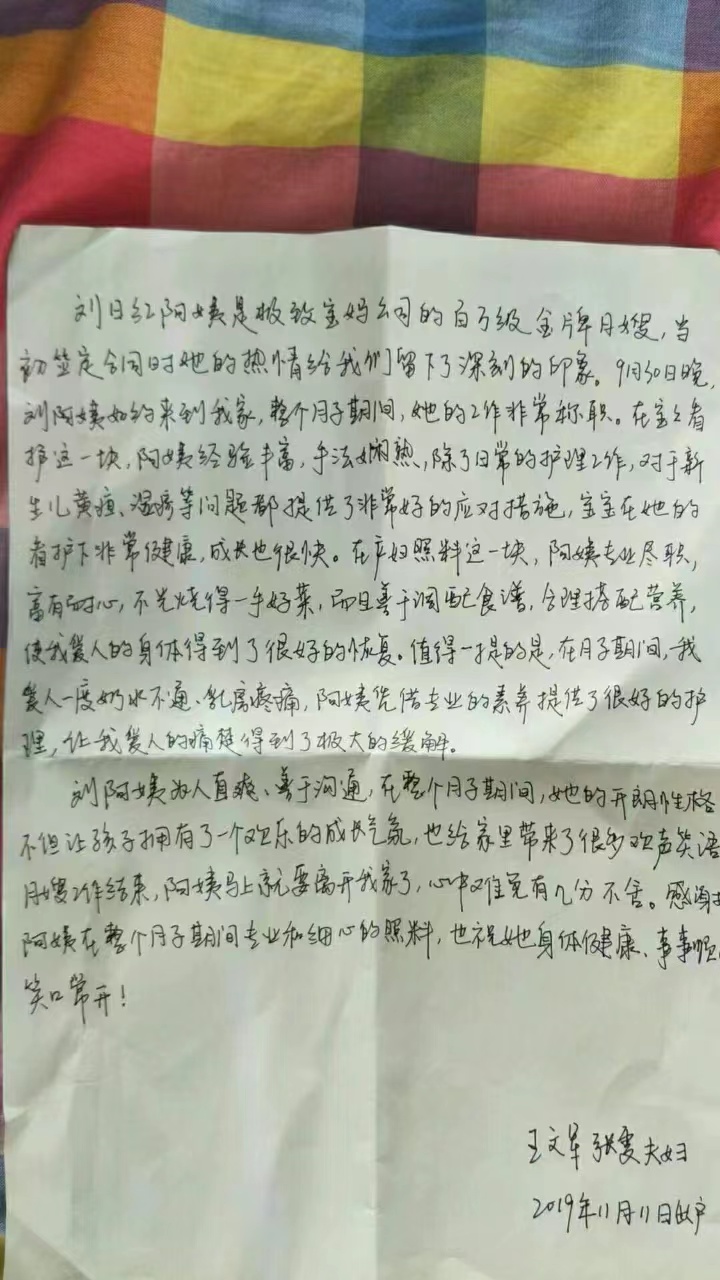 刘日红阿姨是极致宝妈公司的百万级金牌月嫂，当
初签定合同时她的热情给我们留下了深刻的印象。9月30日晚，
刘阿姨如约来到我家，整个月子期间，她的工作非常称职。在宝宝看
护这一块，阿姨经验丰富，手法娴熟，除了日常的护理工作，对于新
生儿黄疸、湿疹等问题都提供了非常好的应对措施，宝宝在她的
看护下非常健康，成长也很快。在产妇照料这一块，阿姨专业尽职，
富有耐心，不光烧得一手好菜，而且善于调配食谱，合理搭配营养，
使我爱人的身体得到了很好的恢复。值得一提的是，在月子期间，我
爱人一度奶水不通、乳房疼痛，阿姨凭借专业的素养提供了很好的护
理，让我爱人的痛楚得到了极大的缓解。
刘阿姨为人直爽、善于沟通，在整个月子期间，她的开朗性格
不但让孩子拥有了一个欢乐的成长气氛，也给家里带来了很多欢声笑语
月嫂工作结束，阿姨马上就要离开我家了，心中难免有几分不舍。感谢
阿姨在整个月子期间专业和细心的照料，也祝她身体健康、事事顺
笑口常开！
王文军 张雯夫妇
2019年11月11日